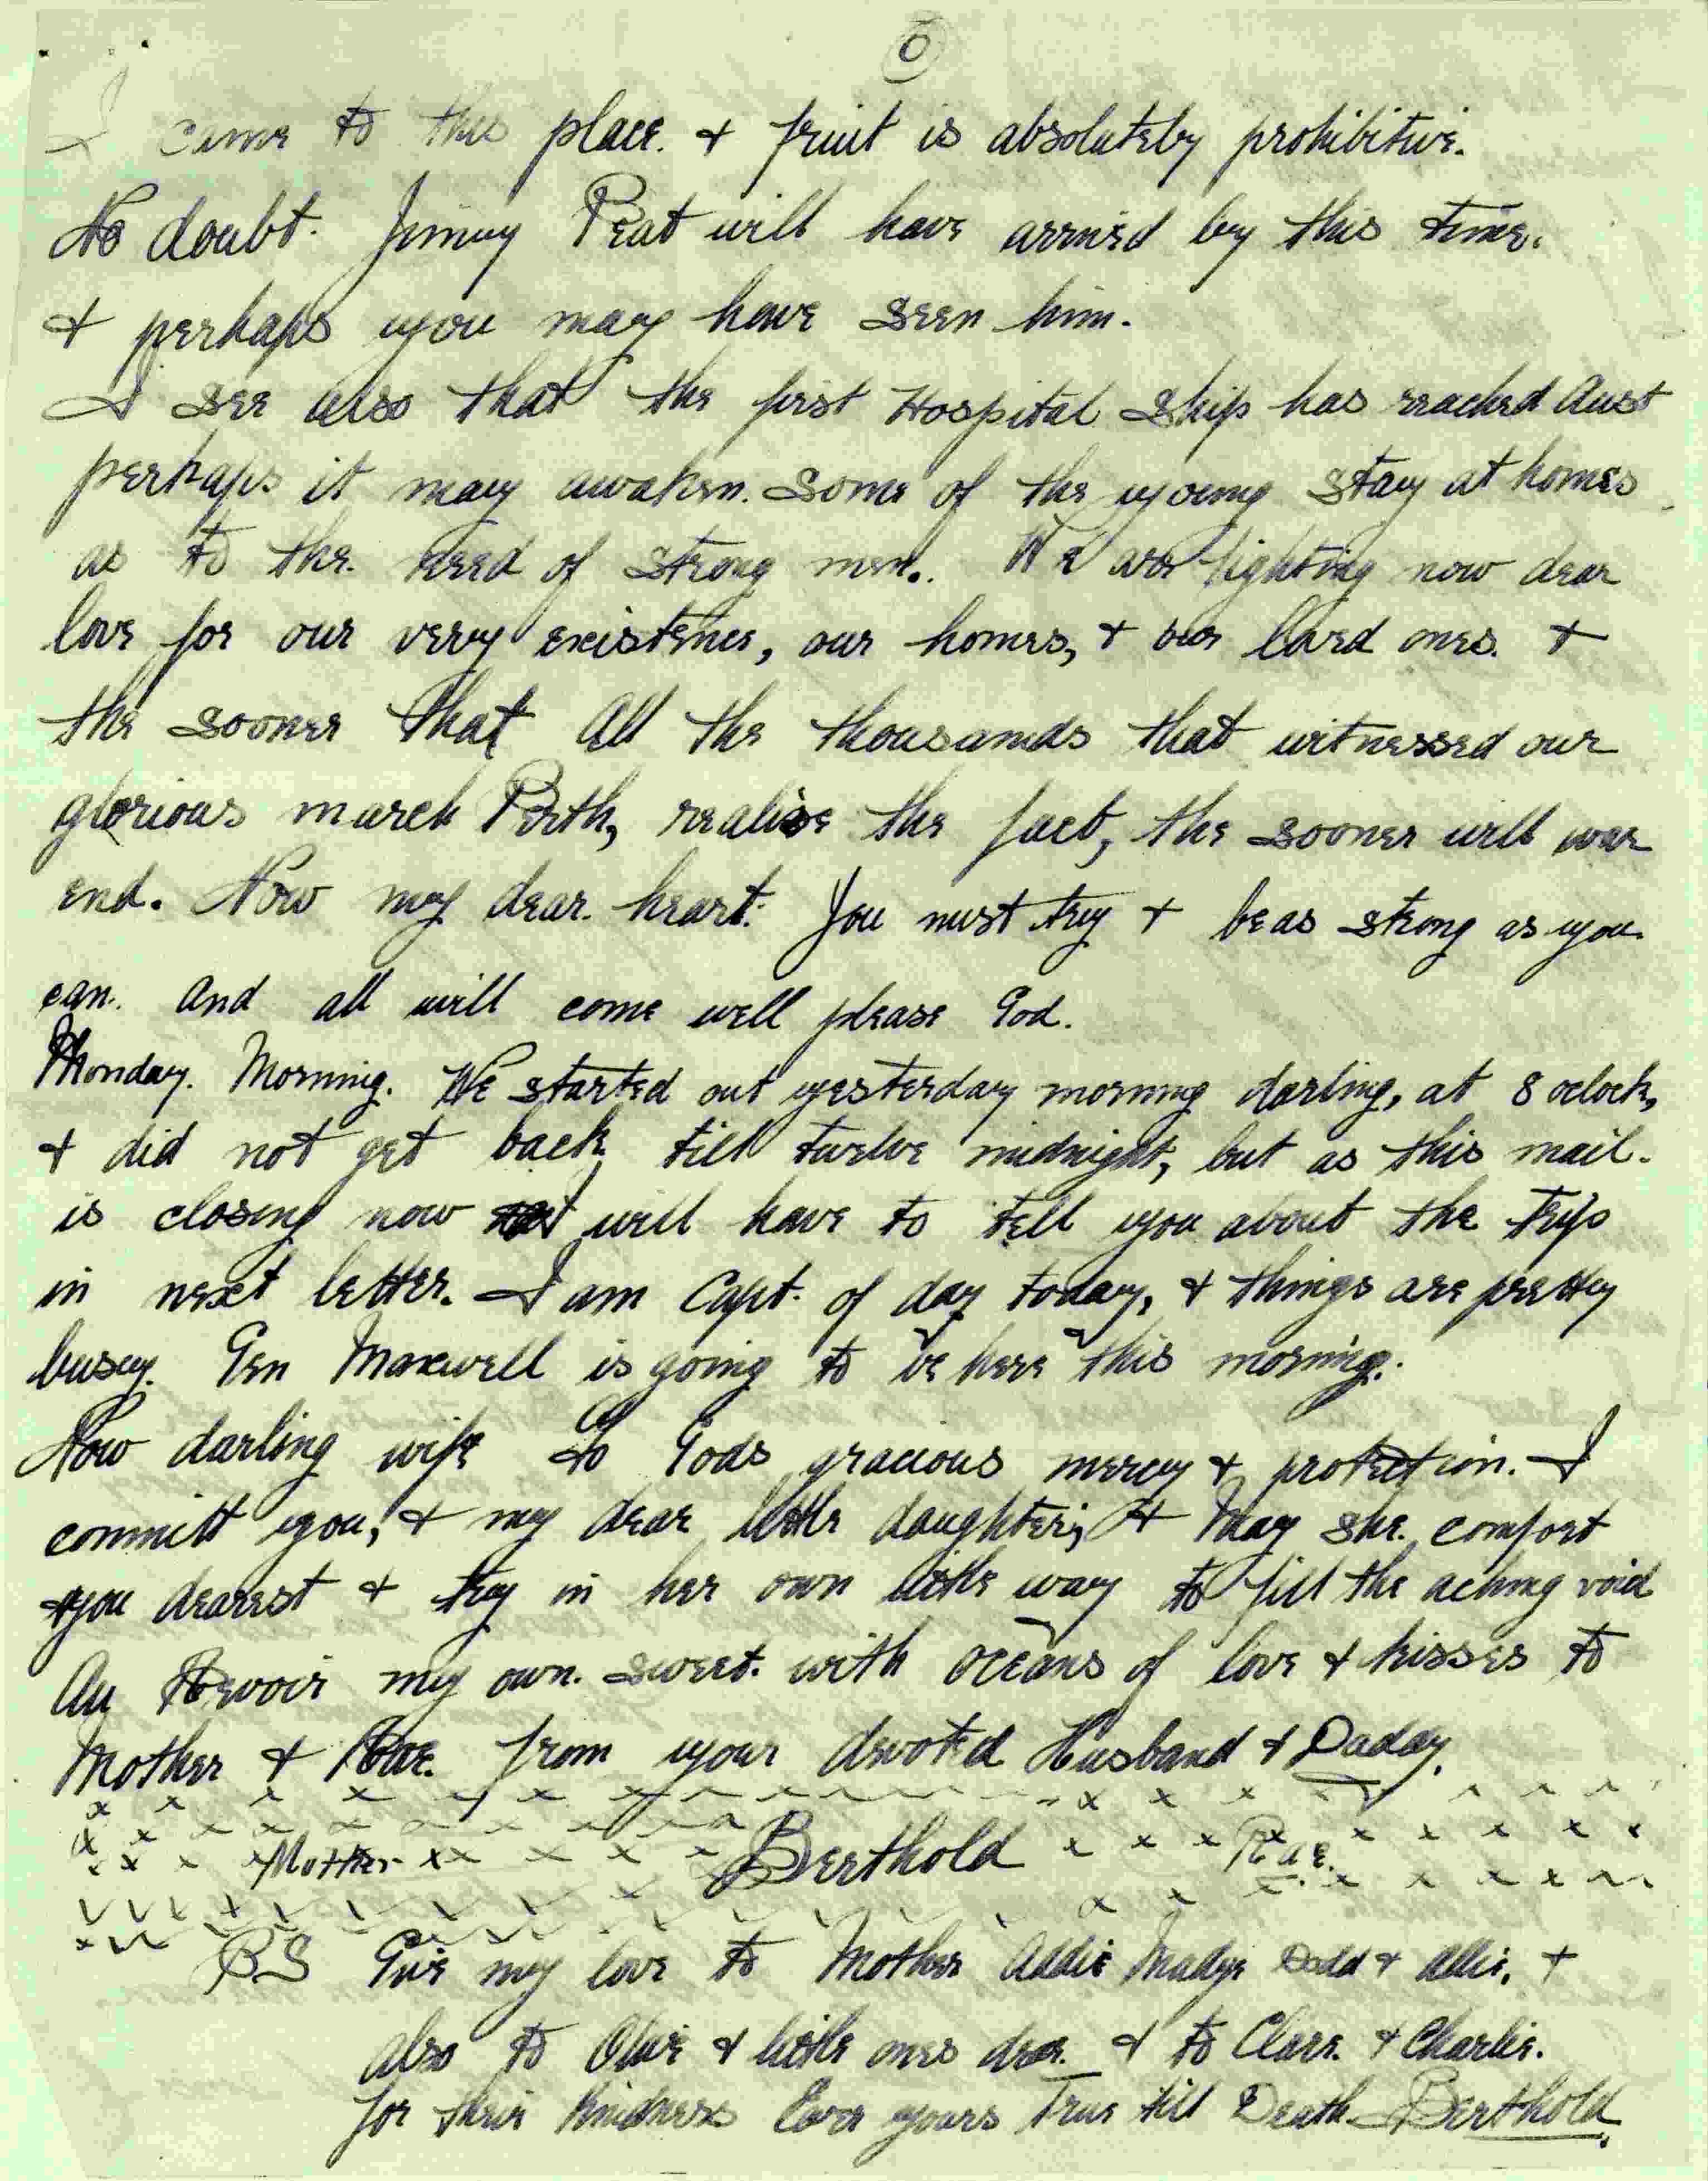 6
I came to this place. & fruit is absolutely prohibitive.
No doubt. Jimmy Peat will have arrived by this time.
& perhaps you may have seen him.
I see also that the first Hospital Ship has reached Aust
perhaps it may awaken. some of the young stay at homes
as to the. need of strong men.. We are fighting now dear
love for our very existence, our homes, & our loved ones. &
the sooner that all the thousands that witnessed our
glorious march Perth, realise the fact, the sooner will war
end. Now my dear. heart. you must try & be as strong as you
can. And all will come well please God.
Monday. Morning. We started out yesterday morning darling, at 8 oclock,
& did not get back till twelve midnight, but as this mail.
is closing now will have to tell you about the trip
in next letter. I am Capt. of day today, & things are pretty
busy. Gen Maxwell is going to be here this morning.
Now darling wife to Gods gracious mercy & protection. I
committ you, & my dear little daughter, & may she. comfort
you dearest & try in her own little way to fill the aching void
Au Revoir my own. sweet. with oceans of love & kisses to
Mother & Rae. from your devoted Husband & Daddy.
Mother Berthold Rae.
PS Give my love to Mother Addie Madge Dodd & Allie. &
also to Olive & little ones dear. & to Clare. & Charlie.
for their kindness Ever yours True till Death Berthold.